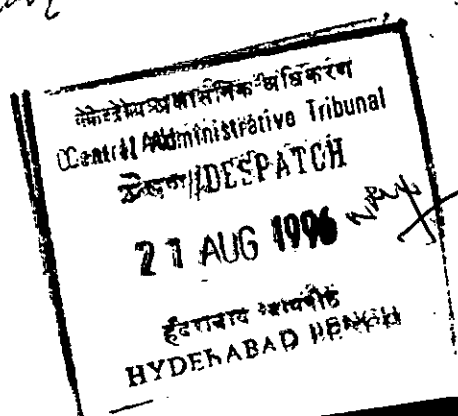 केन्द्रीय प्रशासनिक अधिकरण
Central Administrative Tribunal
DESPATCH
21 AUG 1996
हैदराबाद न्यायपीठ
HYDERABAD BENCH